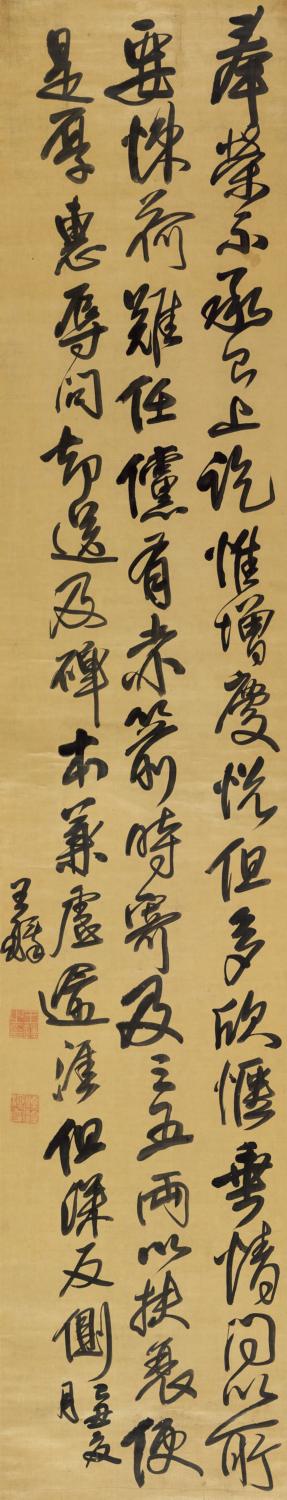 奉榮示承已上訖惟增慶悅但多欣愜垂情問以所
要悚荷難任儻有赤箭時寄及三五兩以扶衰便
是厚惠辱問却送及碑本兼虛涯但深反側己丑夏
月
王鐸